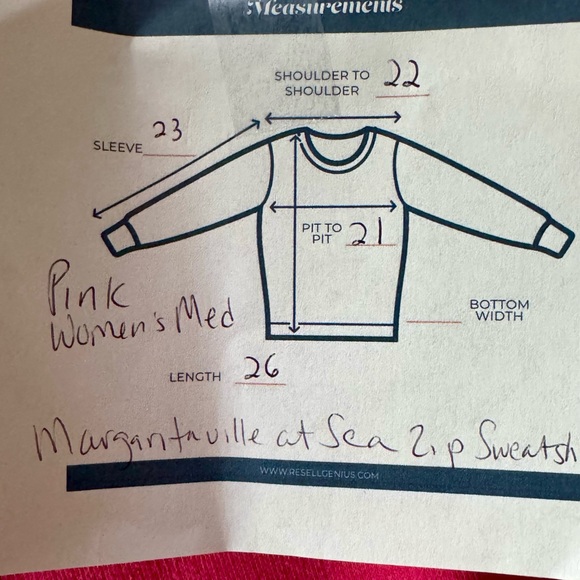 Measurements
SHOULDER TO
SHOULDER 22
SLEEVE 23
PIT TO
PIT 21
Pink
Women's Med
BOTTOM
WIDTH
LENGTH 26
Margaritaville at Sea Zip Sweatsh
WWW.RESELLGENIUS.COM